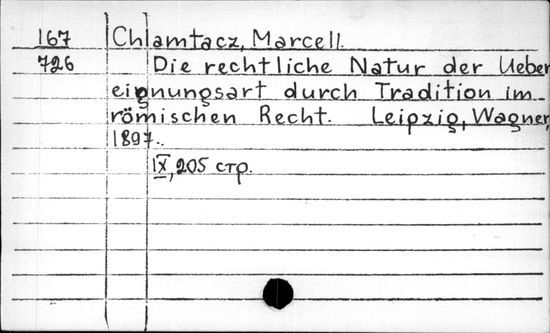 167 Chlamtacz, Marcell.
726 Die rechtliche Natur der Ueber
eignungsart durch Tradition im
römischen Recht. Leipzig, Wagner,
1897.
IX, 205 стр.